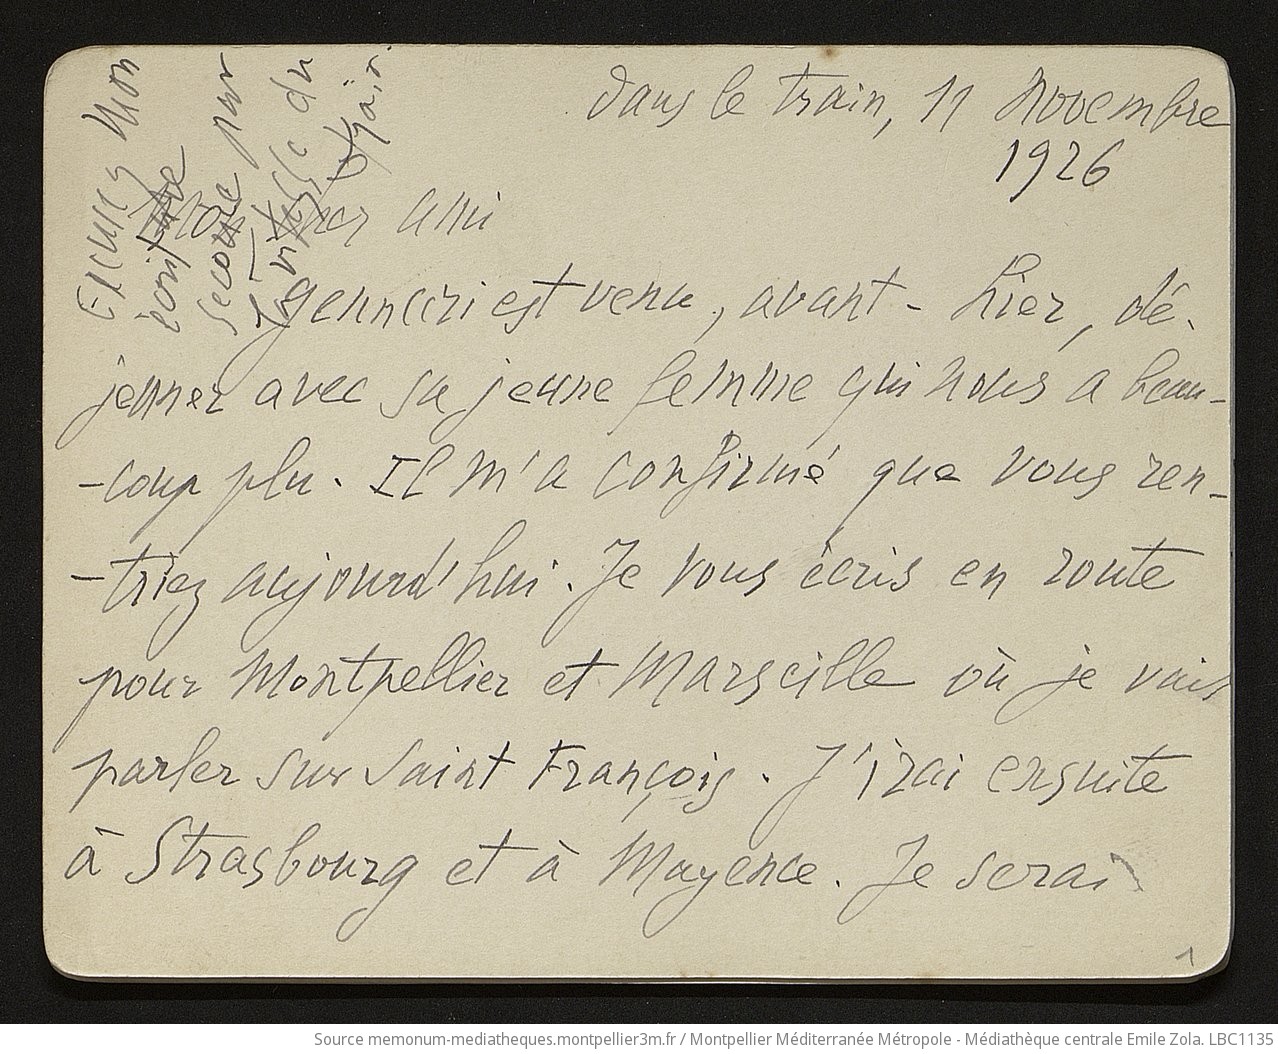 dans le train, 11 Novembre
1926
Mon cher ami
gennari est venu, avant-hier, dé-
jeuner avec sa jeune femme qui nous a beau-
-coup plu. Il m'a confirmé que vous ren-
-triez aujourd'hui. Je vous écris en route
pour Montpellier et Marseille où je vais
parler sur Saint François. J'irai ensuite
à Strasbourg et à Mayence. Je serai
Excusez mon
écriture
secouée par
la vitesse du
1
Source memonum-mediatheques.montpellier3m.fr / Montpellier Méditerranée Métropole - Médiathèque centrale Emile Zola. LBC1135